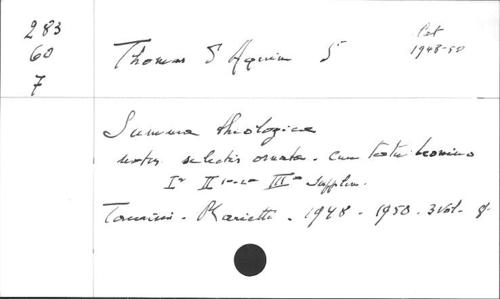 283
60
7
Thomas d'Aquin St
Oct
1948-50
Summa theologica
notis selectis ornata. cum textu leonino
Iª II III Supplem.
Taurini. Marietti. 1948. 1950. 3 Vol. 8.